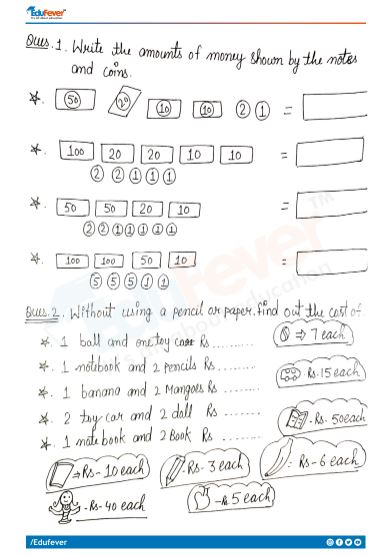 EduFever
Ques.1. Write the amounts of money shown by the notes
and coins.
50 20 10 10 2 1 =
100 20 20 10 10 =
2 2 1 1 1
50 50 20 10 =
2 2 1 1 1 1 1
100 100 50 10 =
5 5 5 1 1
Ques.2. Without using a pencil or paper. find out the cost of.
⇒ 7 each
1 ball and one toy car Rs .........
Rs. 15 each
1 notebook and 2 pencils Rs .......
1 banana and 2 Mangoes Rs .......
2 toy car and 2 doll Rs .......
Rs. 50 each
1 note book and 2 Book Rs .......
⇒ Rs - 10 each
: Rs - 3 each
: Rs - 6 each
- Rs - 40 each
- Rs 5 each
EduFever
/Edufever